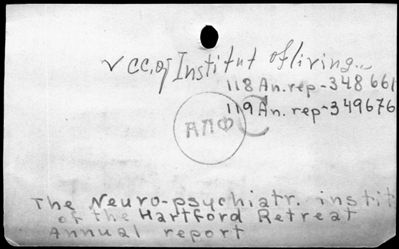 v cc. of Institut of living..
118 An. rep-348 661
119 An. rep-349676
АПФ C
The Neuro-psychiatr. instit
of the Hartford Retreat
Annual report